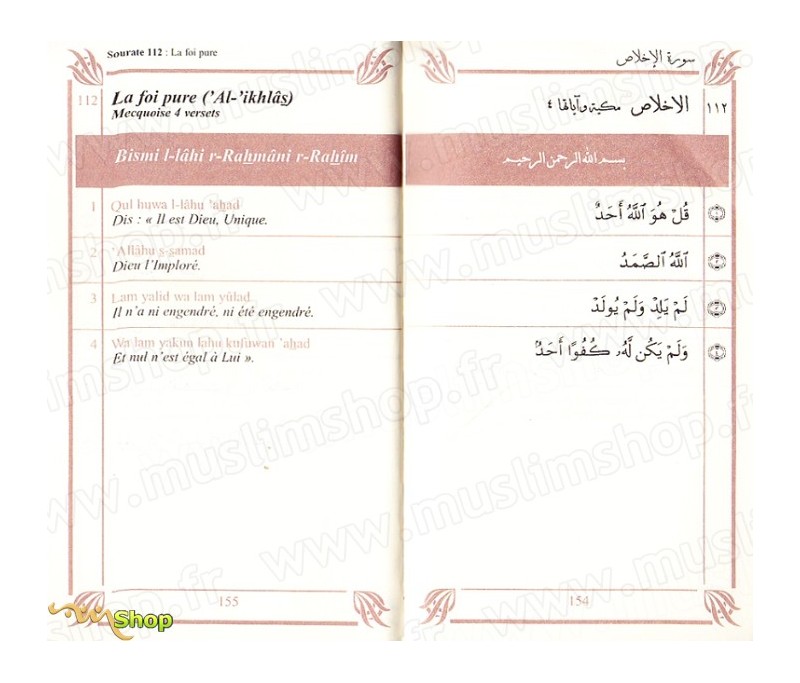 Sourate 112 : La foi pure
112
La foi pure ('Al-'ikhlâs)
Mecquoise 4 versets
Bismi l-lâhi r-Rahmâni r-Rahîm
1 Qul huwa l-lâhu 'ahad
Dis : « Il est Dieu, Unique.
2 'Allâhu s-samad
Dieu l'Imploré.
3 Lam yalid wa lam yûlad
Il n'a ni engendré, ni été engendré.
4 Wa lam yakun lahu kufuwan 'ahad
Et nul n'est égal à Lui ».
155
سورة الإخلاص
١١٢ الاخلاص مكية وآياتها ٤
بسم الله الرحمن الرحيم
قُلْ هُوَ ٱللَّهُ أَحَدٌ
ٱللَّهُ ٱلصَّمَدُ
لَمْ يَلِدْ وَلَمْ يُولَدْ
وَلَمْ يَكُن لَّهُۥ كُفُوًا أَحَدٌ
154
www.muslimshop.fr
Shop